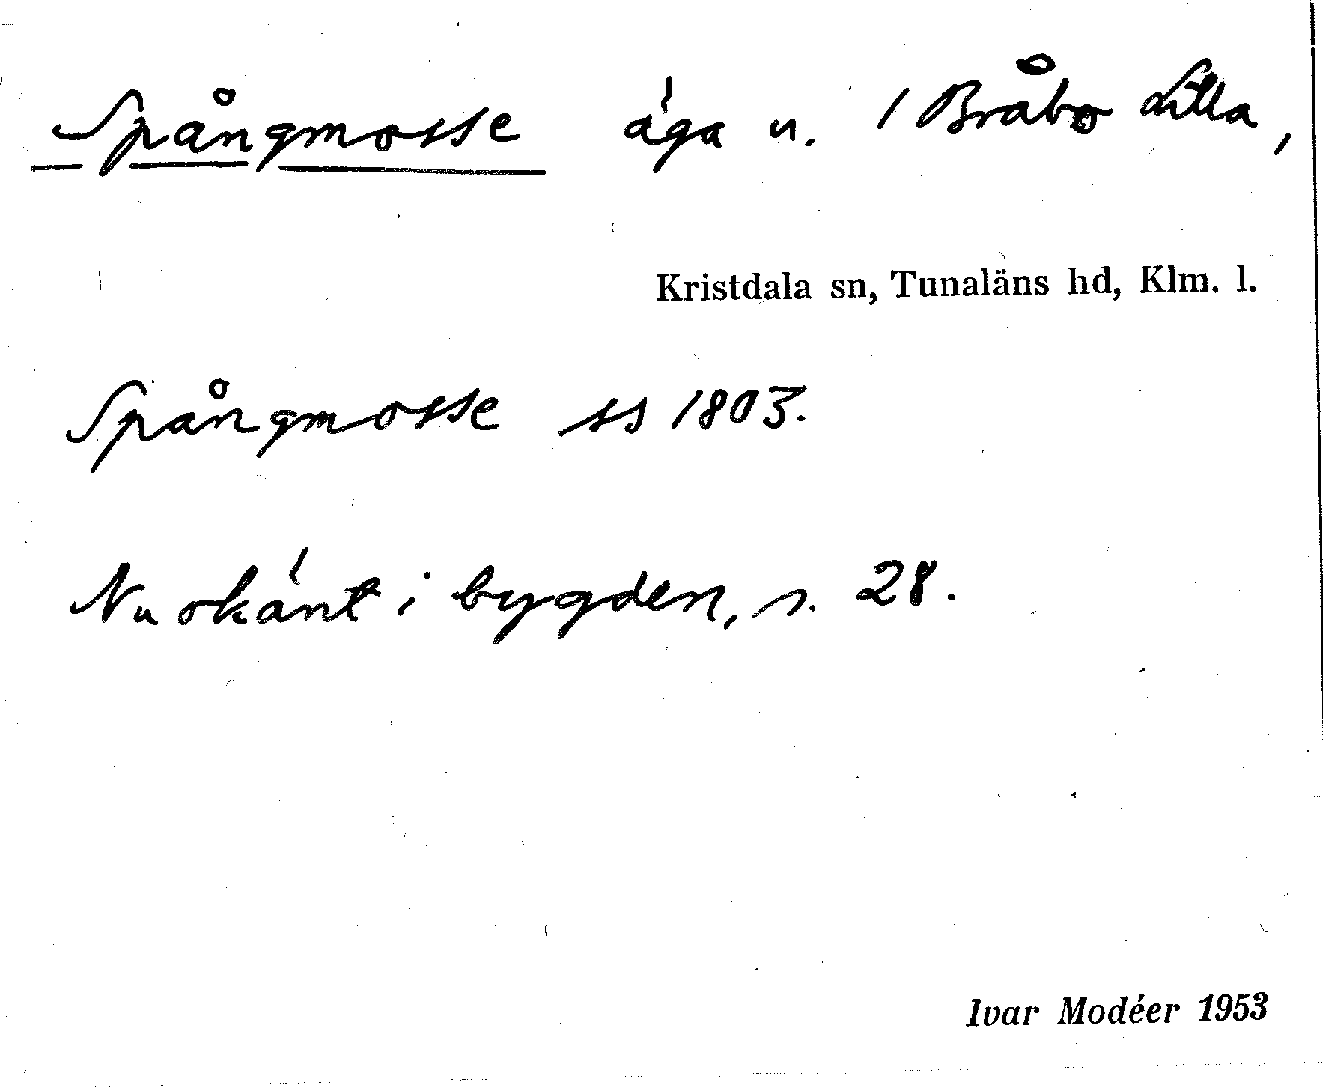 Spångmosse äga u. 1 Bråbo Lilla,
Kristdala sn, Tunaläns hd, Klm. l.
Spångmosse ss 1803.
Nu okänt i bygden, s. 28.
Ivar Modéer 1953